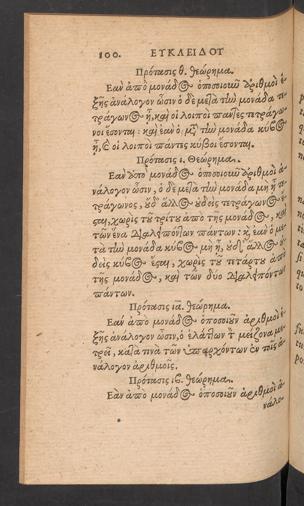 100. ΕΥΚΛΕΙΔΟΥ
Πρότασις θ. θεώρημα.
Ἐὰν ἀπὸ μονάδος ὁποσοιοῦν ἀριθμοὶ ἑ-
ξῆς ἀνάλογον ὦσιν ὁ δὲ μετὰ τὴν μονάδα τε-
τράγωνος ᾖ, καὶ οἱ λοιποὶ πάντες τετράγω-
νοι ἔσονται· καὶ ἐὰν ὁ μετὰ τὴν μονάδα κύβος
ᾖ, καὶ οἱ λοιποὶ πάντες κύβοι ἔσονται.
Πρότασις ι. Θεώρημα.
Ἐὰν ἀπὸ μονάδος ὁποσοιοῦν ἀριθμοὶ ἀ-
νάλογον ὦσιν, ὁ δὲ μετὰ τὴν μονάδα μὴ ᾖ τε-
τράγωνος, οὐδ' ἄλλος οὐδεὶς τετράγωνος ἔ-
σται, χωρὶς τοῦ τρίτου ἀπὸ τῆς μονάδος, καὶ
τῶν ἕνα διαλειπόντων πάντων· κἂν ὁ με-
τὰ τὴν μονάδα κύβος μὴ ᾖ, οὐδ' ἄλλος οὐ-
δεὶς κύβος ἔσται, χωρὶς τοῦ τετάρτου ἀπὸ
τῆς μονάδος, καὶ τῶν δύο διαλειπόντων
πάντων.
Πρότασις ια. θεώρημα.
Ἐὰν ἀπὸ μονάδος ὁποσοιοῦν ἀριθμοὶ ἑ-
ξῆς ἀνάλογον ὦσιν, ὁ ἐλάττων τὸν μείζονα με-
τρεῖ, κατά τινα τῶν ὑπαρχόντων ἐν τοῖς ἀ-
νάλογον ἀριθμοῖς.
Πρότασις ιβ. θεώρημα.
Ἐὰν ἀπὸ μονάδος ὁποσοιοῦν ἀριθμοὶ ἀ-
νάλο-